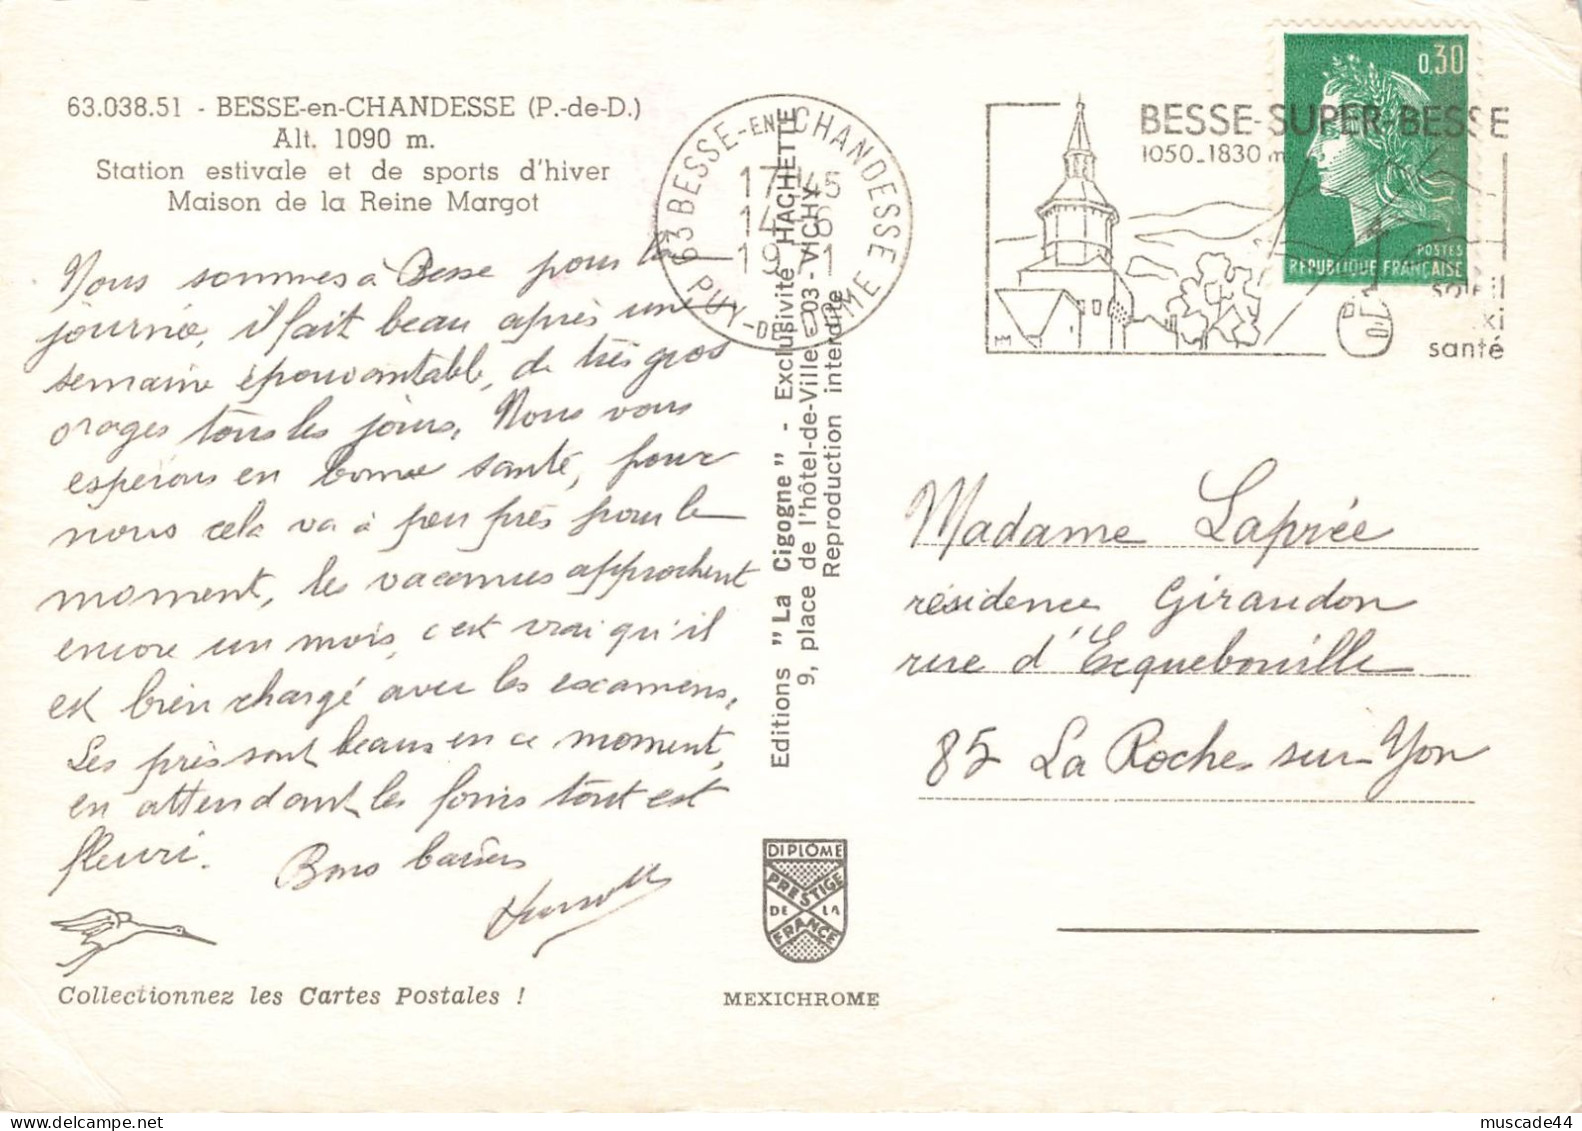 63.038.51 - BESSE-en-CHANDESSE (P.-de-D.)
Alt. 1090 m.
Station estivale et de sports d'hiver
Maison de la Reine Margot
Nous sommes à Besse pour la
journée, il fait beau après une
semaine épouvantable, de très gros
orages tous les jours. Nous vous
espérons en bonne santé, pour
nous cela va à peu près pour le
moment, les vacances approchent
encore un mois, c'est vrai qu'il
est bien chargé avec les examens.
Les prés sont beaux en ce moment,
en attendant les foins tout est
fleuri. Bons baisers
Collectionnez les Cartes Postales !
63 BESSE-EN-CHANDESSE
PUY-DE-DOME
17H45
14-6
1971
Editions "La Cigogne" - Exclusivité HACHETTE
9, place de l'hôtel-de-Ville - 03 - VICHY
Reproduction interdite
DIPLÔME
PRESTIGE
DE LA
FRANCE
MEXICHROME
BESSE-SUPER-BESSE
1050-1830 m
soleil
ski
santé
0,30
POSTES
REPUBLIQUE FRANÇAISE
Madame Laprée
résidence Giraudon
rue d'Ecquebouille
85 La Roche sur Yon
muscade44